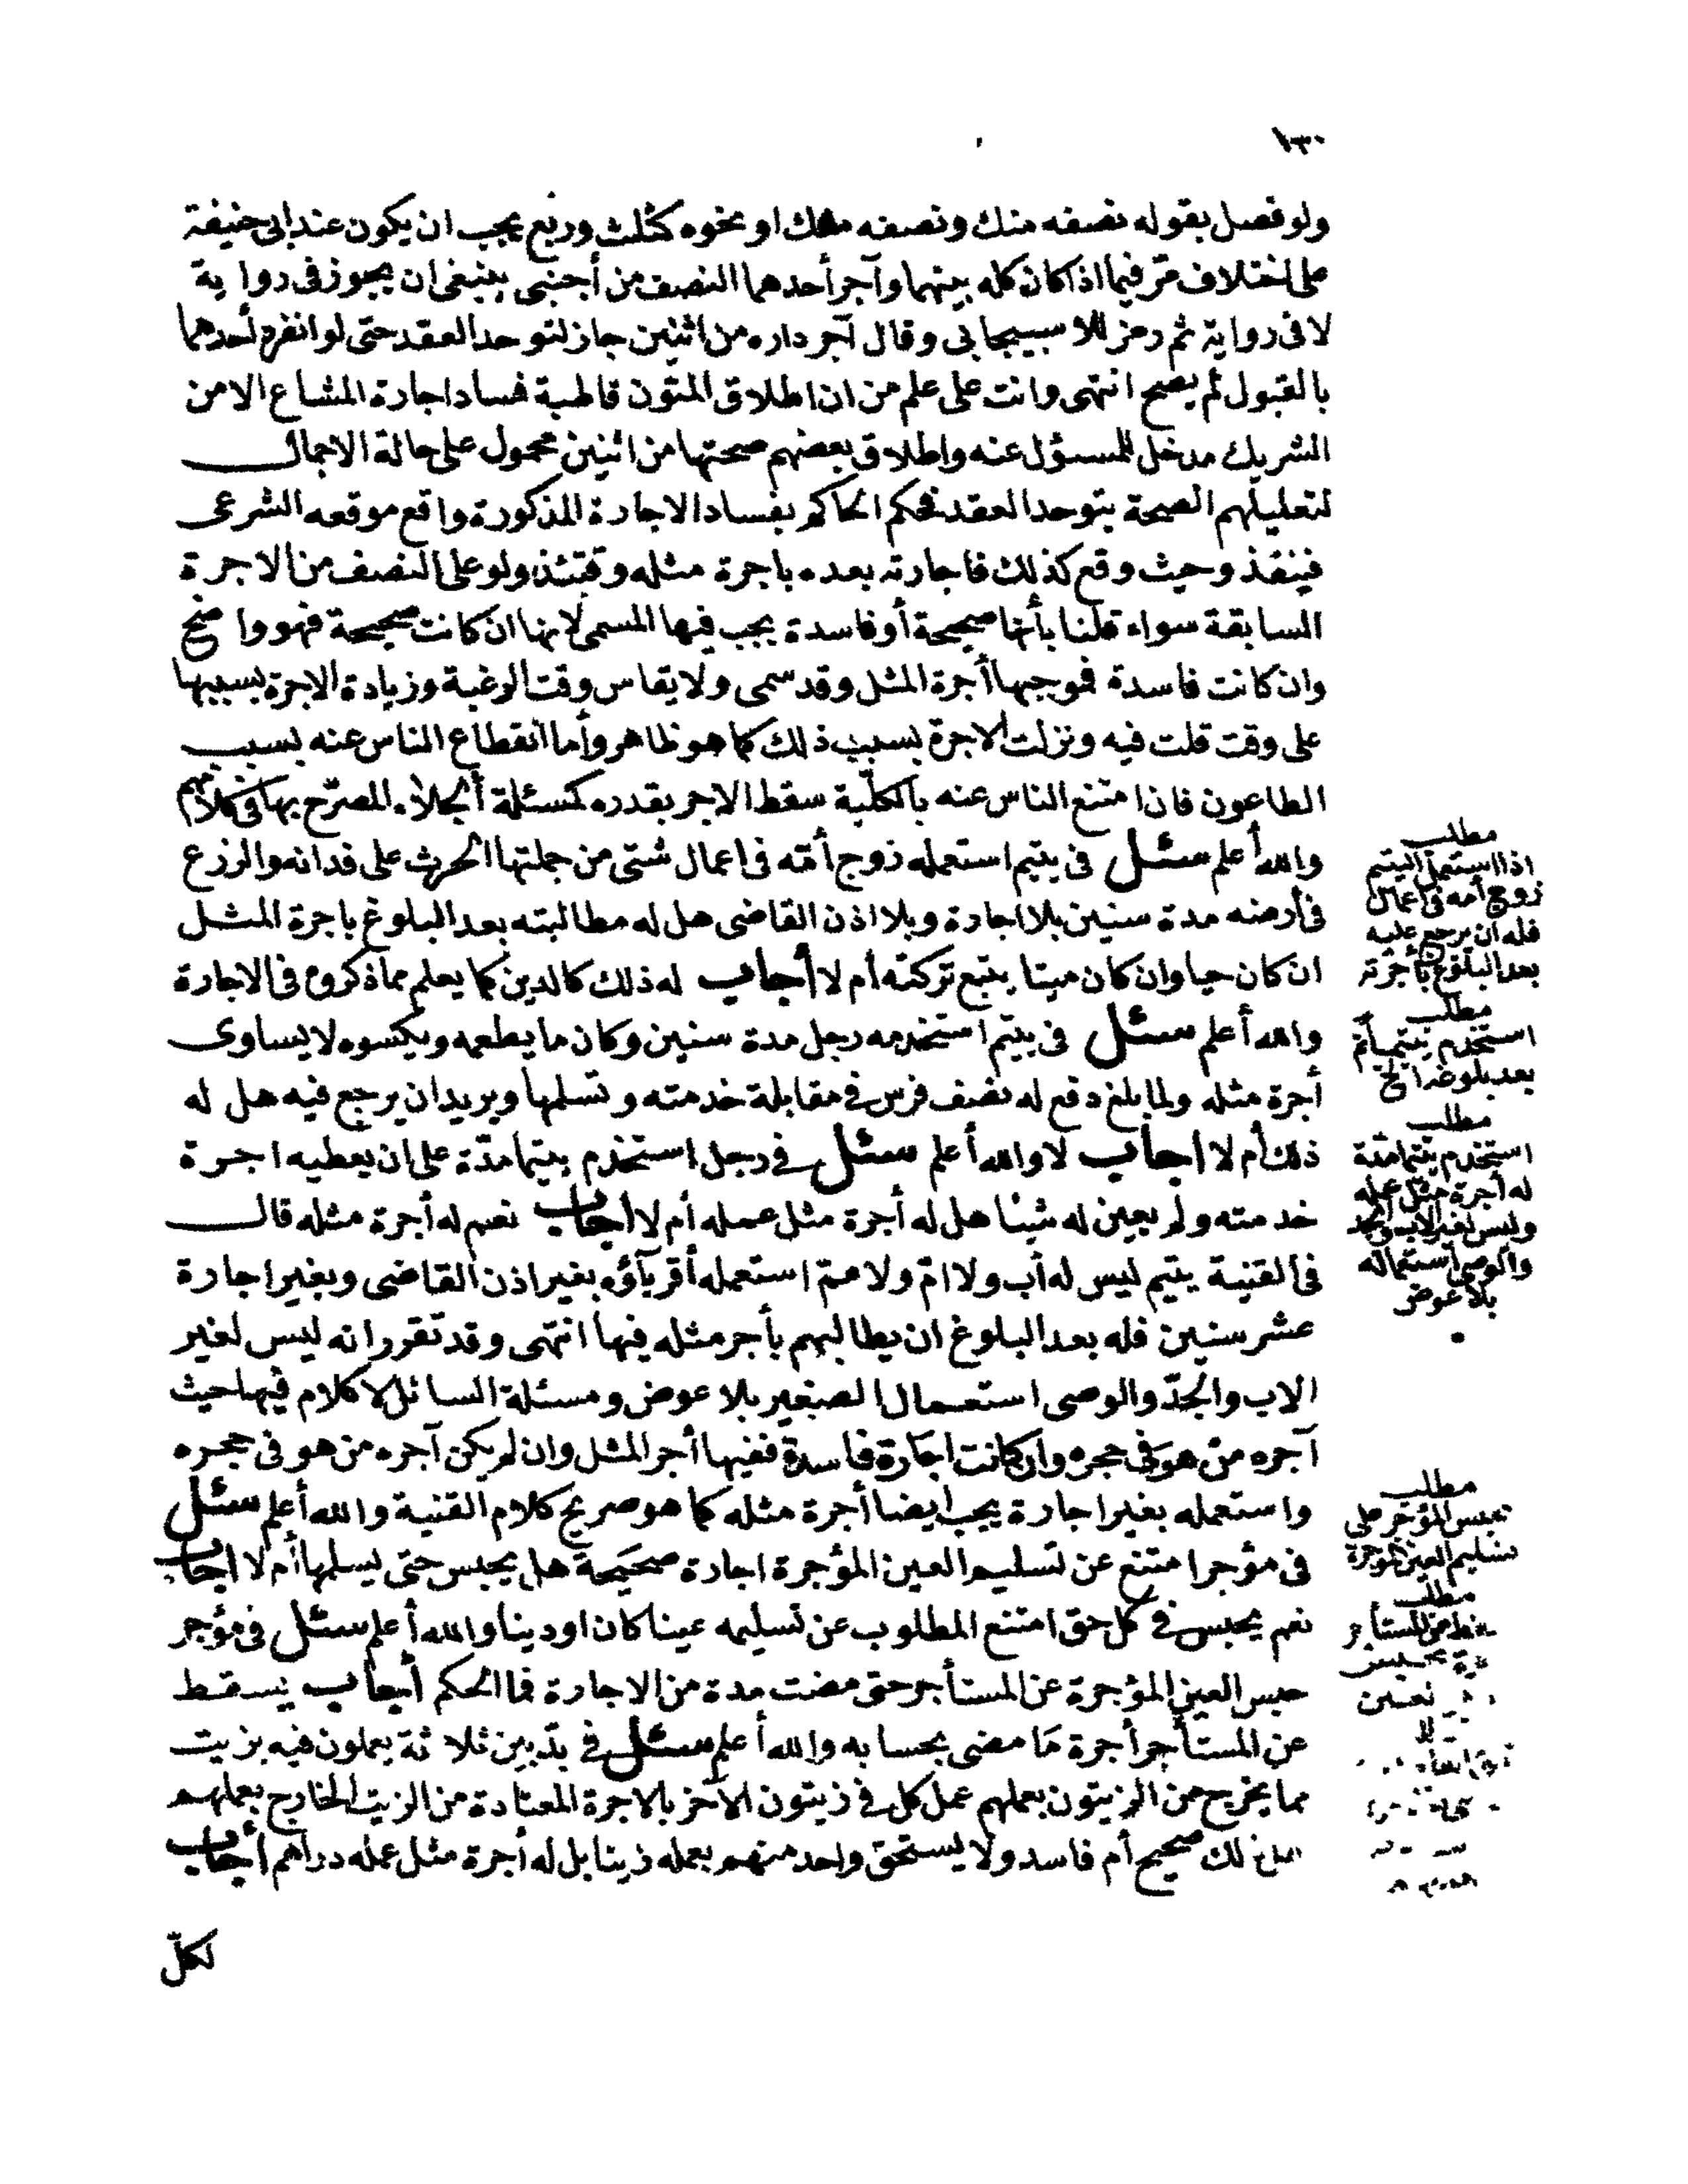 ١٣٠
ولو فصل بقوله نصفه منك ونصفه منك او نحوه كثلث وربع يجب ان يكون عند ابى حنيفة
على اختلاف مرّ فيما اذا كان كله بينهما وآجر أحدهما النصف من أجنبى ينبغى ان يجوز فى رواية
لا فى رواية ثم رمز للاسبيجابى وقال آجر داره من اثنين جاز لتوحد العقد حتى لو انفرد أحدهما
بالقبول لم يصح انتهى وانت على علم من ان اطلاق المتون قاطبة فساد اجارة المشاع الا من
الشريك مدخل للمسؤل عنه واطلاق بعضهم صحتها من اثنين محمول على حالة الاجمال
لتعليلهم الصحة بتوحد العقد فحكم الحاكم بفساد الاجارة المذكورة واقع موقعه الشرعى
فينفذ وحيث وقع كذلك فاجارته بعده باجرة مثله وقتئذ ولو على النصف من الاجرة
السابقة سواء قلنا بأنها صحيحة أو فاسدة يجب فيها المسمى لانها ان كانت صحيحة فهو واضح
وان كانت فاسدة فموجبها أجرة المثل وقد سمى ولا يقاس وقت الرغبة وزيادة الاجرة بسببها
على وقت قلت فيه ونزلت الاجرة بسبب ذلك كما هو ظاهر وأما انقطاع الناس عنه بسبب
الطاعون فاذا امتنع الناس عنه بالكلّية سقط الاجر بقدره كمسئلة الجلاء المصرّح بها فى كلامهم
والله أعلم سئل فى يتيم استعمله زوج أمّه فى اعمال شتى من جملتها الحرث على فدانه والزرع
فى أرضه مدة سنين بلا اجارة وبلا اذن القاضى هل له مطالبته بعد البلوغ باجرة المثل
ان كان حيا وان كان ميتا يتبع تركته أم لا أجاب له ذلك كالدين كما يعلم مما ذكروه فى الاجارة
والله أعلم سئل فى يتيم استخدمه رجل مدة سنين وكان ما يطعمه ويكسوه لا يساوى
أجرة مثله ولما بلغ دفع له نصف فرس فى مقابلة خدمته وتسلمها ويريد ان يرجع فيه هل له
ذلك أم لا اجاب لا والله أعلم سئل فى رجل استخدم يتيما مدّة على ان يعطيه اجرة
خدمته ولم يعين له شيئا هل له أجرة مثل عمله أم لا اجاب نعم له أجرة مثله قال
فى القنية يتيم ليس له أب ولا امّ ولا عمّ استعمله أقرباؤه بغير اذن القاضى وبغير اجارة
عشر سنين فله بعد البلوغ ان يطالبهم بأجر مثله فيها انتهى وقد تقرر انه ليس لغير
الاب والجدّ والوصى استعمال الصغير بلا عوض ومسئلة السائل لا كلام فيها حيث
آجره من هو فى حجره وان كانت اجارة فاسدة ففيها أجر المثل وان لم يكن آجره من هو فى حجره
واستعمله بغير اجارة يجب ايضا أجرة مثله كما هو صريح كلام القنية والله أعلم سئل
فى مؤجر امتنع عن تسليم العين المؤجرة اجارة صحيحة هل يحبس حتى يسلمها أم لا اجاب
نعم يحبس فى كل حق امتنع المطلوب عن تسليمه عينا كان او دينا والله أعلم سئل فى مؤجر
حبس العين المؤجرة عن المستأجر حتى مضت مدة من الاجارة فما الحكم أجاب يسقط
عن المستأجر أجرة ما مضى بحسابه والله أعلم سئل فى بدّ بين ثلاثة يعملون فيه بزيت
مما يخرج من الزيتون بعملهم عمل كل فى زيتون الآخر بالاجرة المعتادة من الزيت الخارج بعملهم
ذلك صحيح أم فاسد ولا يستحق واحد منهم بعمله زيتا بل له أجرة مثل عمله دراهم أجاب
لكلّ
مطلب
اذا استعمل اليتيم
زوج أمه فى اعمال
فله ان يرجع عليه
بعد البلوغ بأجرته
مطلب
استخدم يتيما ثم
بعد بلوغه الخ
مطلب
استخدم يتيما مدّة
له أجرة مثل عمله
وليس لغير الاب والجد
والوصى استعماله
بلا عوض
مطلب
يحبس المؤجر على
تسليم العين المؤجرة
مطلب
المستأجر